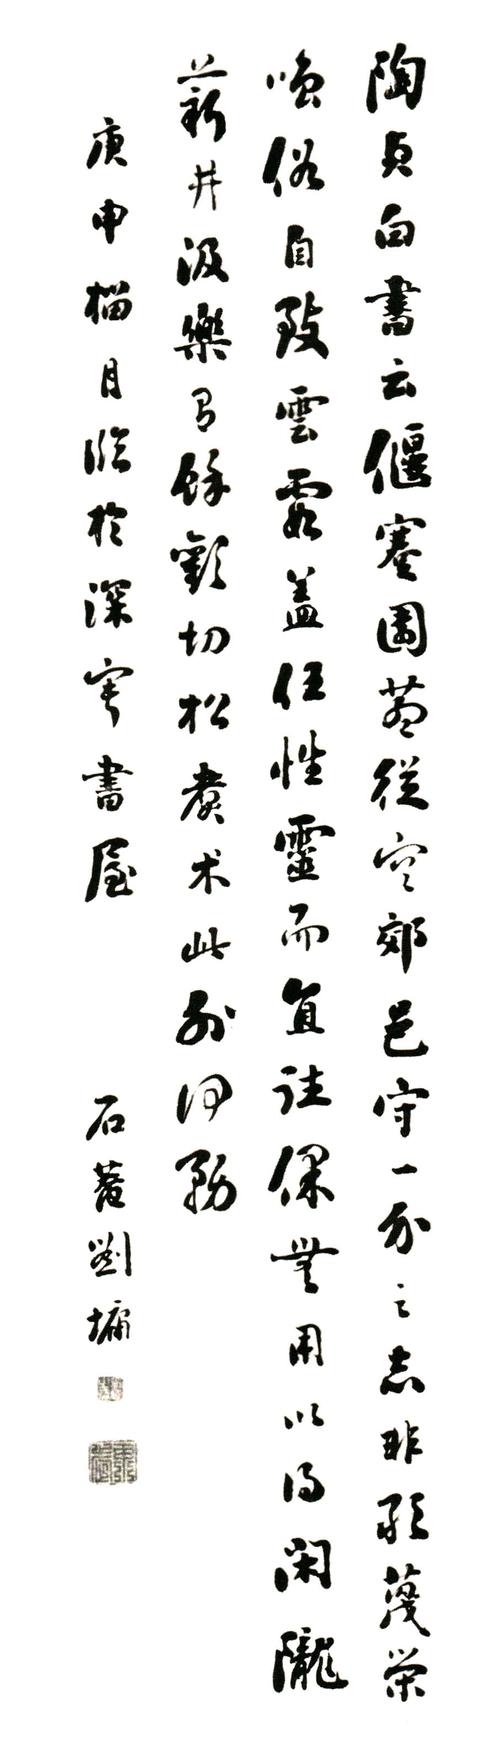 陶貞白書云偃蹇園巷從容郊邑守一介之志非敢蔑榮
嗤俗自致雲霞蓋任性靈而直往保無用以得閑隴
薪井汲樂有餘歡切松煮术此外何務
庚申榴月臨於深書屋
石菴劉墉